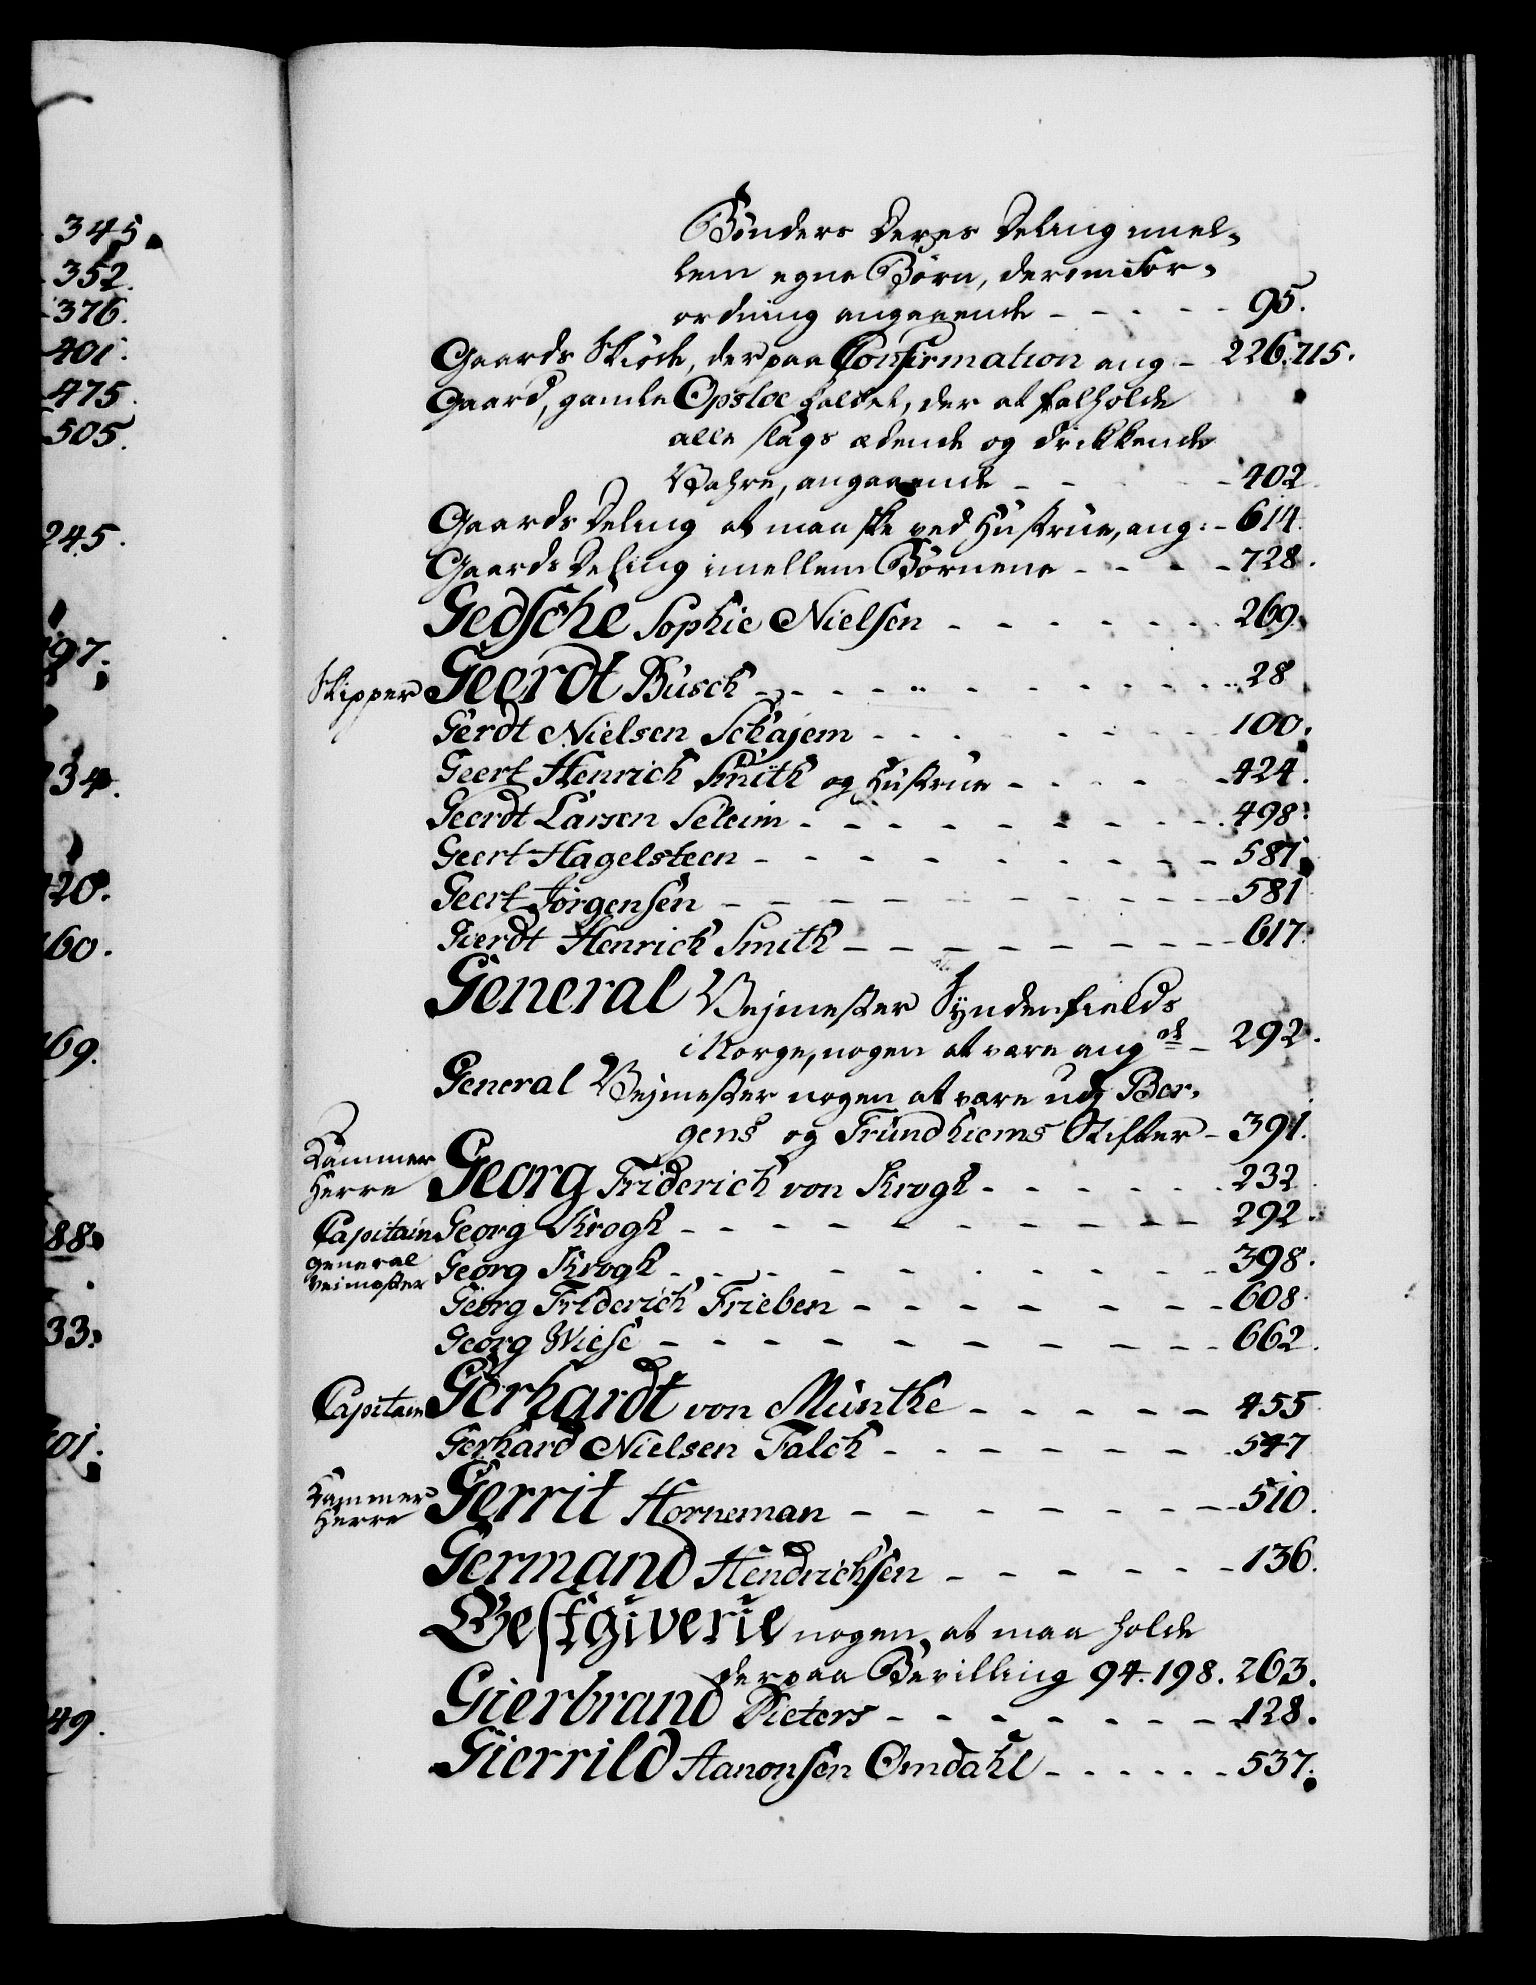 345.
352.
376.
401.
475.
505.
245.
97.
34.
120.
160.
169.
88.
33.
101.
49.
Bønders deres Deling imel-
lem egne Børn, derom For-
ordning angaaende - - - - - 95.
Gaards Skiøde, derpaa Confirmation ang - 226.715.
Gaard, gamle Opsloe kaldet, der at falholde
alle slags ædende og drikkende
Vahre, angaaende - - - - - 402.
Gaards Deling at maa ske ved Hustrue, ang: - 614.
Gaards Deling imellem Børnene - - - - 728.
Gedsche Sophie Nielsen - - - - - - 269.
Skipper Geerdt Busch - - - - - - - - - - 28
Gerdt Nielsen Schajem - - - - - - - - 100.
Geert Henrich Smith og Hustrue - - - - - 424.
Geerdt Larsen Seleim - - - - - - - - - 498.
Geert Hagelsteen - - - - - - - - - - 587.
Geert Jørgensen - - - - - - - - - - - 581
Gierdt Henrich Smith - - - - - - - - - 617.
General Vejmester Syndenfields
i Norge, nogen at være angde - 292.
General Vejmester nogen at være udj Ber-
gens og Trundhiems Stifter - 391.
Kammer
Herre Georg Friderich von Krogh - - - - - - 232
Capitain Georg Krogh - - - - - - - - - - - 292.
General
Veimester Georg Krogh - - - - - - - - - - - 398.
Georg Friderich Frieben - - - - - - - - 608.
Georg Wiese - - - - - - - - - - - 662.
Capitain Gerhardt von Munthe - - - - - - 455
Gerhard Nielsen Falch - - - - - - - - 547
Kammer
Herre Gerrit Horneman - - - - - - - - 510.
Germand Hendrichsen - - - - - - - 136.
Gestgiverie nogen, at maa holde
derpaa Bevilling 94. 198. 263.
Gierbrand Pieters - - - - - - - - 128.
Gierrild Aanonsen Omdahl - - - - - - 537.